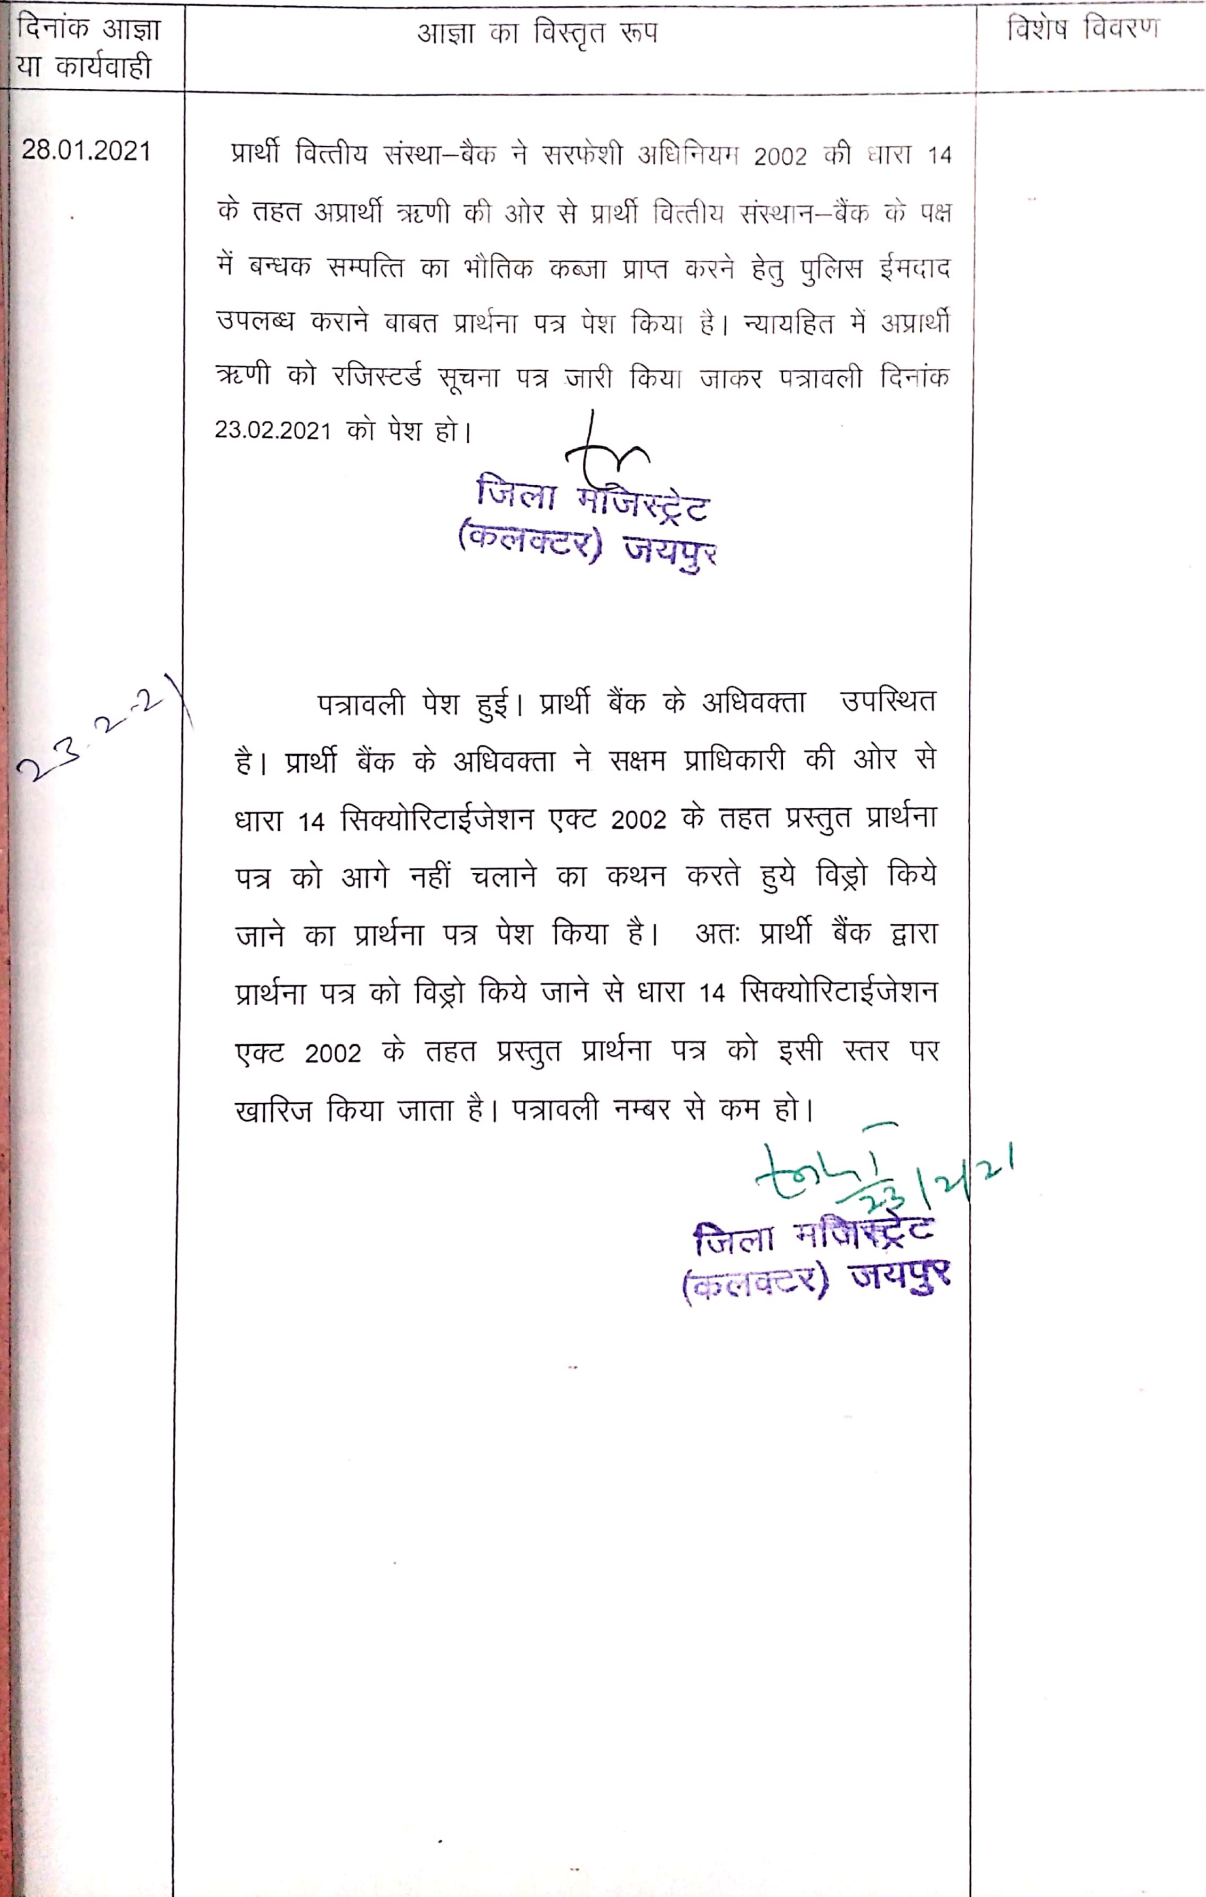 दिनांक आज्ञा
या कार्यवाही
आज्ञा का विस्तृत रूप
विशेष विवरण
28.01.2021
प्रार्थी वित्तीय संस्था–बैक ने सरफेशी अधिनियम 2002 की धारा 14
के तहत अप्रार्थी ऋणी की ओर से प्रार्थी वित्तीय संस्थान–बैंक के पक्ष
में बन्धक सम्पत्ति का भौतिक कब्जा प्राप्त करने हेतु पुलिस ईमदाद
उपलब्ध कराने बाबत प्रार्थना पत्र पेश किया है। न्यायहित में अप्रार्थी
ऋणी को रजिस्टर्ड सूचना पत्र जारी किया जाकर पत्रावली दिनांक
23.02.2021 को पेश हो।
जिला मजिस्ट्रेट
(कलक्टर) जयपुर
23.2-21
पत्रावली पेश हुई। प्रार्थी बैंक के अधिवक्ता उपस्थित
है। प्रार्थी बैंक के अधिवक्ता ने सक्षम प्राधिकारी की ओर से
धारा 14 सिक्योरिटाईजेशन एक्ट 2002 के तहत प्रस्तुत प्रार्थना
पत्र को आगे नहीं चलाने का कथन करते हुये विड्रो किये
जाने का प्रार्थना पत्र पेश किया है। अतः प्रार्थी बैंक द्वारा
प्रार्थना पत्र को विड्रो किये जाने से धारा 14 सिक्योरिटाईजेशन
एक्ट 2002 के तहत प्रस्तुत प्रार्थना पत्र को इसी स्तर पर
खारिज किया जाता है। पत्रावली नम्बर से कम हो।
23/2/21
जिला मजिस्ट्रेट
(कलक्टर) जयपुर